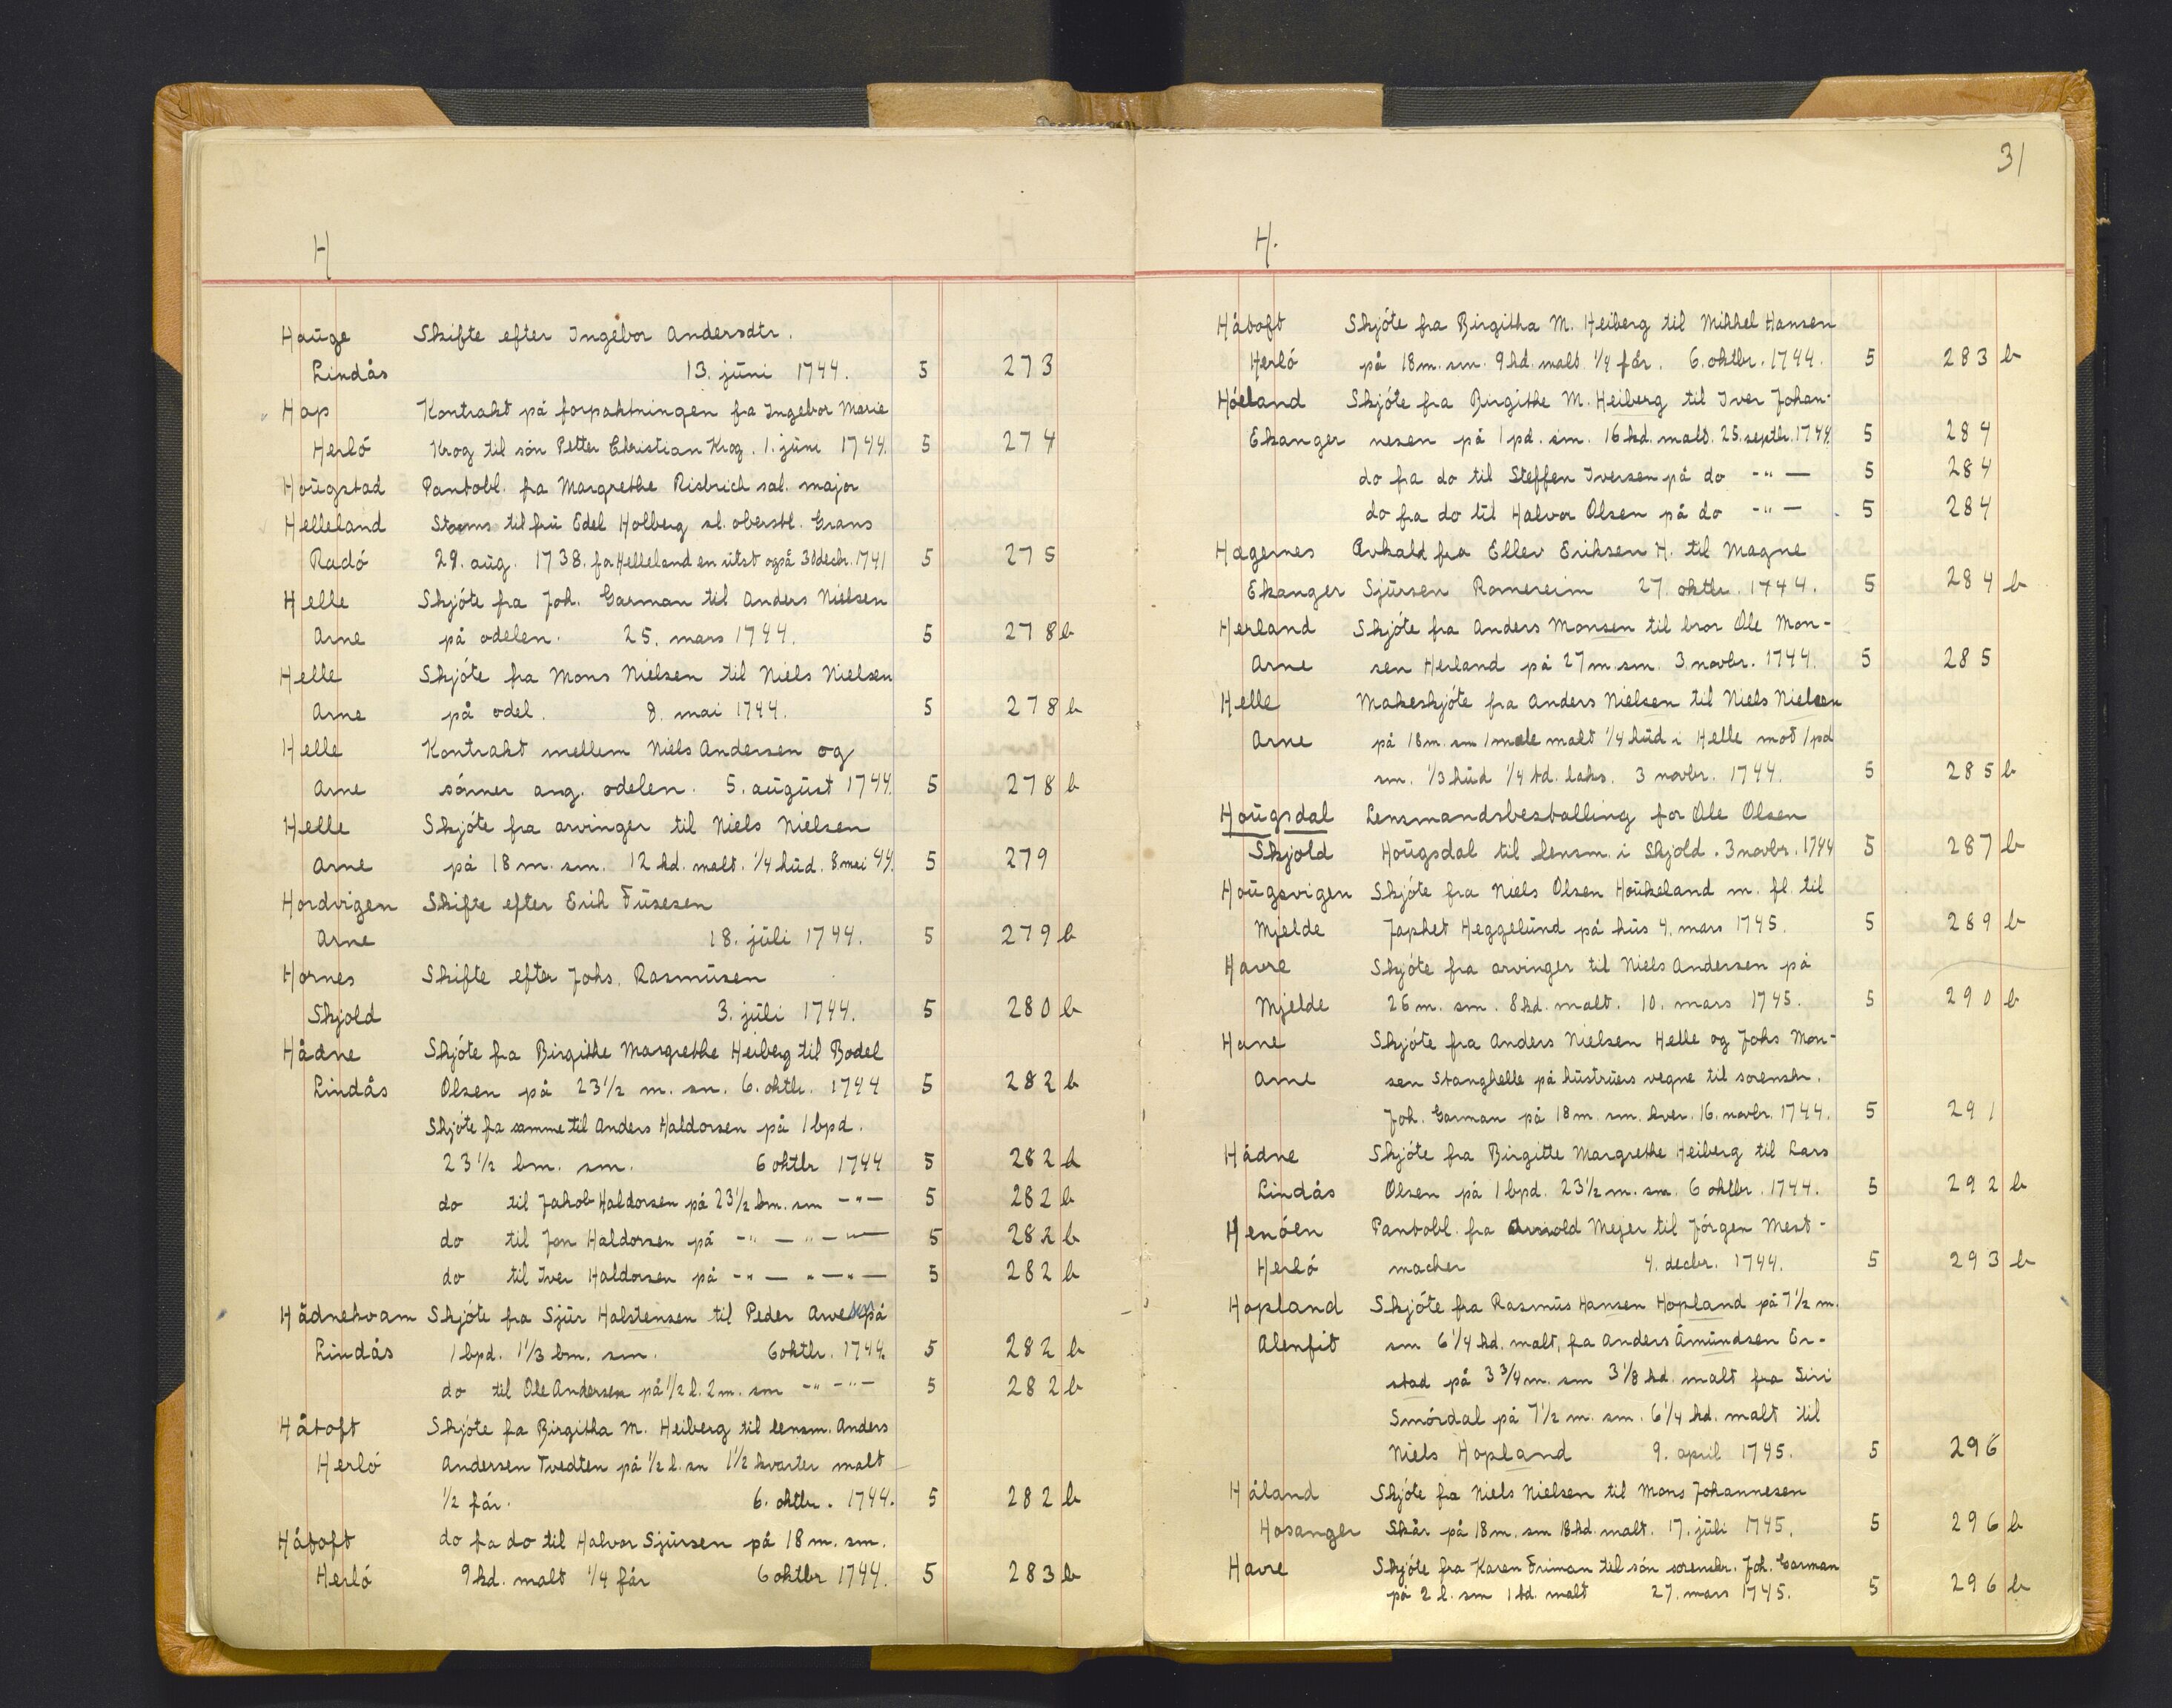 H
Haüge Skifte efter Ingebor Andersdtr.
Lindås 13. jüni 1744. 5 273
Hop Kontrakt på forpaktningen fra Ingebor Marie
Herló Krog til són Petter Christian Krog. 1. jüni 1744. 5 274
Hoügstad Pantobl. fra Margrethe Risbrich sal. major
Helleland Storms til frü Edel Holberg sl. oberstl. Grans
Radó 29. aüg. 1738. for Helleland en utst også 30 decbr. 1741 5 275
Helle Skjóte fra Joh. Garman til Anders Nielsen
Arne på odelen. 25. mars 1744. 5 278 b
Helle Skjóte fra Mons Nielsen til Niels Nielsen
Arne på odel. 8. mai 1744. 5 278 b
Helle Kontrakt mellem Niels Andersen og
Arne sónner ang. odelen. 5. aügüst 1744. 5 278 b
Helle Skjóte fra arvinger til Niels Nielsen
Arne på 18 m. sm. 12 kd. malt. 1/4 hüd. 8 mai 44. 5 279
Hordvigen Skifte efter Erik Füsesen
Arne 18. jüli 1744. 5 279 b
Hornes Skifte efter Johs. Rasmüsen
Skjold 3. jüli 1744. 5 280 b
Hådne Skjóte fra Birgithe Margrethe Heiberg til Bodel
Lindås Olsen på 23 1/2 m. sm. 6. oktbr. 1744 5 282 b
Skjóte fra samme til Anders Haldorsen på 1 bpd.
23 1/2 bm. sm. 6 oktbr 1744 5 282 b
do til Jakob Haldorsen på 23 1/2 bm. sm -"- 5 282 b
do til Jon Haldorsen på -"- -"- -"- 5 282 b
do til Iver Haldorsen på -"- -"-"- 5 282 b
Hådnekvam Skjóte fra Sjür Halstensen til Peder Arvesen på
Lindås 1 bpd. 1 1/3 bm. sm. 6 oktbr. 1744. 5 282 b
do til Ole Andersen på 1/2 l. 2 m. sm -"-"- 5 282 b
Håtoft Skjóte fra Birgitha M. Heiberg til lensm. Anders
Herló Andersen Tvedten på 1/2 l. sm 1 1/2 kvarter malt
1/2 får. 6. oktbr. 1744. 5 282 b
Håtoft do fra do til Halvor Sjürsen på 18 m. sm.
Herló 9 kd. malt 1/4 får 6 oktbr 1744. 5 283 b
31
H.
Håtoft Skjóte fra Birgitha M. Heiberg til Mikkel Hansen
Herló på 18 m. sm. 9 kd. malt. 1/4 får. 6. oktbr. 1744. 5 283 b
Hóeland Skjóte fra Birgithe M. Heiberg til Iver Johan-
Ekanger nesen på 1 pd. sm. 16 kd. malt. 25. septbr. 1744. 5 284
do fra do til Steffen Iversen på do -"- 5 284
do fra do til Halvor Olsen på do -"- 5 284
Hægernes Avkald fra Ellev Eriksen H. til Magne
Ekanger Sjürsen Romereim 27. oktbr. 1744. 5 284 b
Herland Skjóte fra Anders Monsen til bror Ole Mon-
Arne sen Herland på 27 m. sm. 3. novbr. 1744. 5 285
Helle Makeskjóte fra Anders Nielsen til Niels Nielsen
Arne på 18 m. sm 1 mele malt 1/4 hüd i Helle mot 1 pd
sm. 1/3 hüd 1/4 td. laks. 3 novbr. 1744. 5 285 b
Hoügsdal Lensmandsbestalling for Ole Olsen
Skjold Hoügsdal til lensm. i Skjold. 3 novbr. 1744 5 287 b
Hoügsvigen Skjóte fra Niels Olsen Hoükeland m. fl. til
Mjelde Japhet Heggelünd på hüs 4. mars 1745. 5 289 b
Havre Skjóte fra arvinger til Niels Andersen på
Mjelde 26 m. sm. 8 kd. malt. 10. mars 1745. 5 290 b
Hane Skjóte fra Anders Nielsen Helle og Johs Mon-
Arne sen Stanghelle på hüstrüers vegne til sorenskr.
Joh. Garman på 18 m. sm. hver. 16. novbr. 1744. 5 291
Hådne Skjóte fra Birgitte Margrethe Heiberg til Lars
Lindås Olsen på 1 bpd. 23 1/2 m. sm. 6 oktbr. 1744. 5 292 b
Henóen Pantobl. fra Arnold Mejer til Jórgen Mest-
Herló macher 4. decbr. 1744. 5 293 b
Hopland Skjóte fra Rasmüs Hansen Hopland på 7 1/2 m.
Alenfit sm 6 1/4 kd. malt, fra Anders Åmündsen Er-
stad på 3 3/4 m. sm 3 1/8 kd. malt fra Siri
Smórdal på 7 1/2 m. sm. 6 1/4 kd. malt til
Niels Hopland 9. april 1745. 5 296
Håland Skjóte fra Niels Nielsen til Mons Johannesen
Hosanger Skår på 18 m. sm 18 kd. malt. 17. jüli 1745. 5 296 b
Havre Skjóte fra Karen Friman til són sorenskr. Joh. Garman
på 2 l. sm 1 td. malt 27. mars 1745. 5 296 b